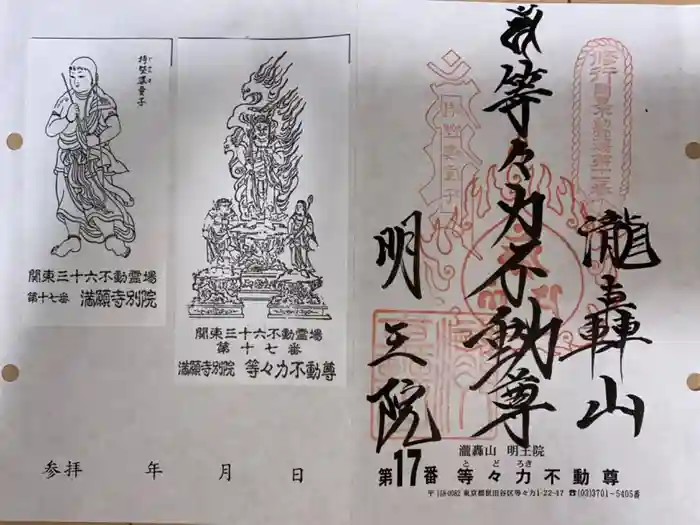 持堅婆童子
関東三十六不動霊場
第十七番 満願寺別院
関東三十六不動霊場
第十七番
満願寺別院 等々力不動尊
参拝 年 月 日
瀧轟山
等々力不動尊
明王院
瀧轟山 明王院
とどろき
第17番 等々力不動尊
〒158-0082 東京都世田谷区等々力1-22-47 ☎(03)3701-5405番